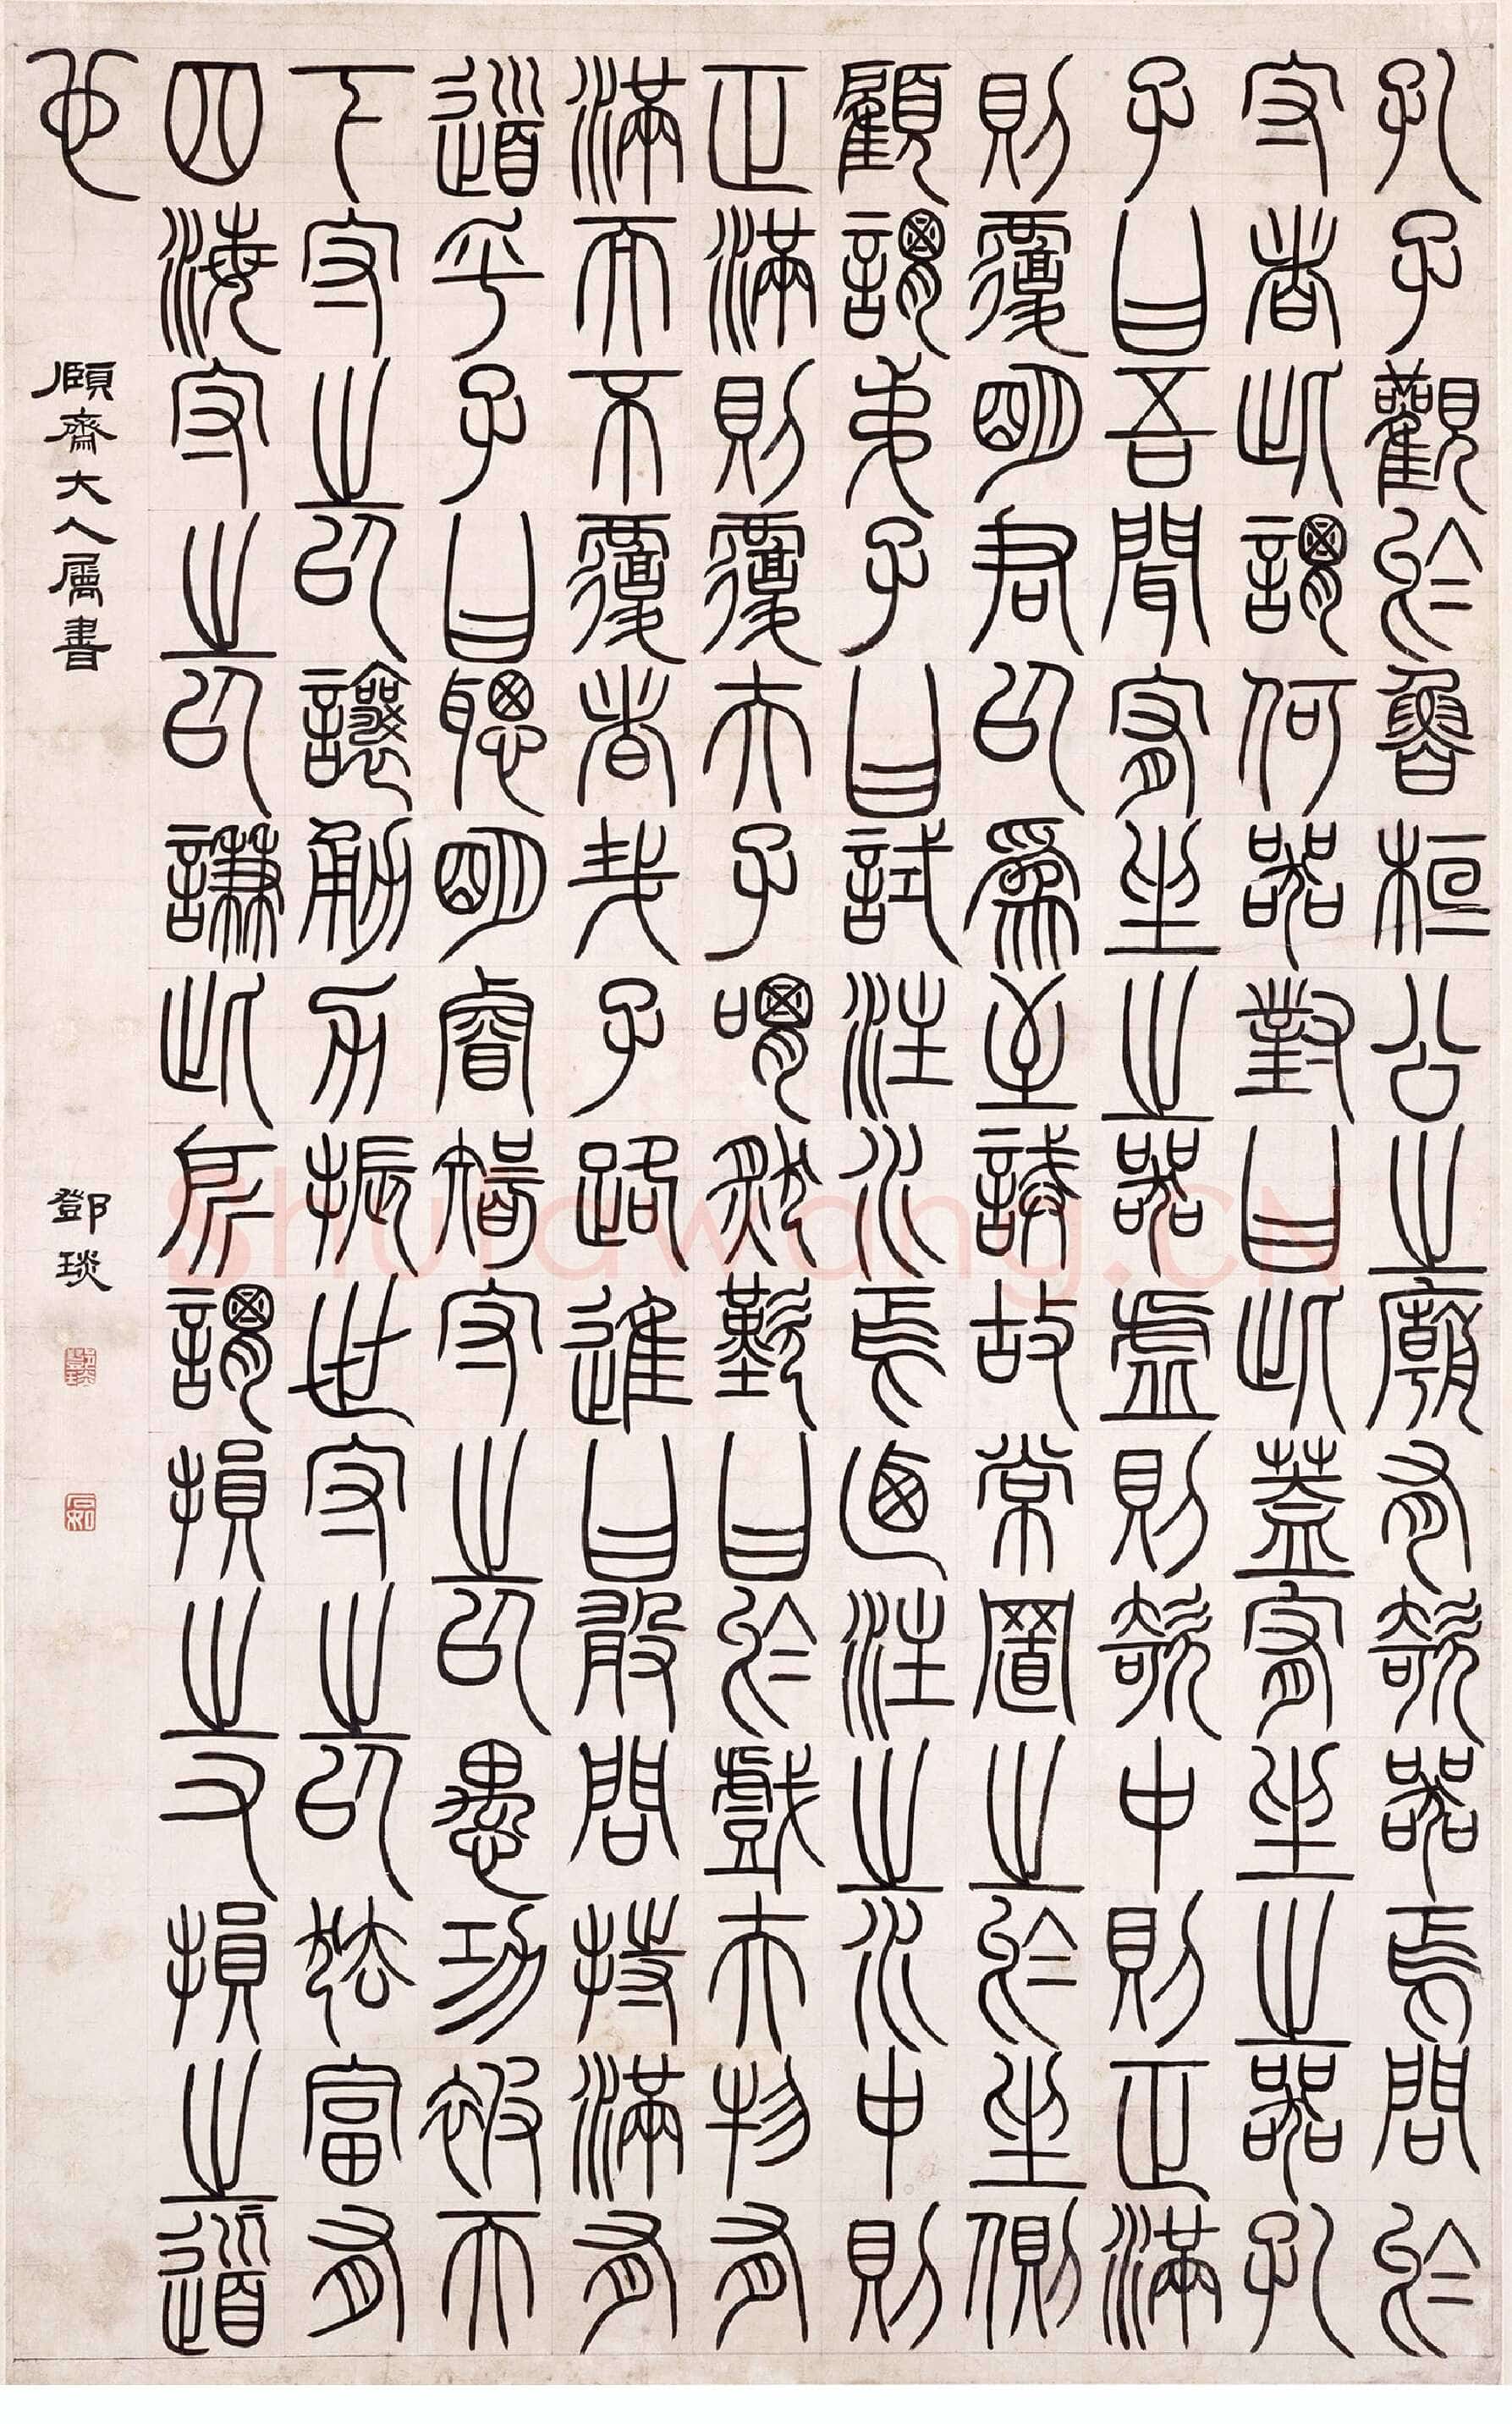 孔子觀於魯桓公之廟有欹器焉問於
守者此謂何器對曰此蓋宥坐之器孔
子曰吾聞宥坐之器虛則欹中則正滿
則覆明君以為至誡故常置之於坐側
顧謂弟子曰試注水焉乃注之水中則
正滿則覆夫子喟然歎曰於戲夫物有
滿而不覆者哉子路進曰敢問持滿有
道乎子曰聰明睿智守之以愚功被天
下守之以讓勇力振世守之以怯富有
四海守之以謙此所謂損之又損之道
也
頤齋大人屬書
鄧琰
鄧琰
石如
Shufawang.CN